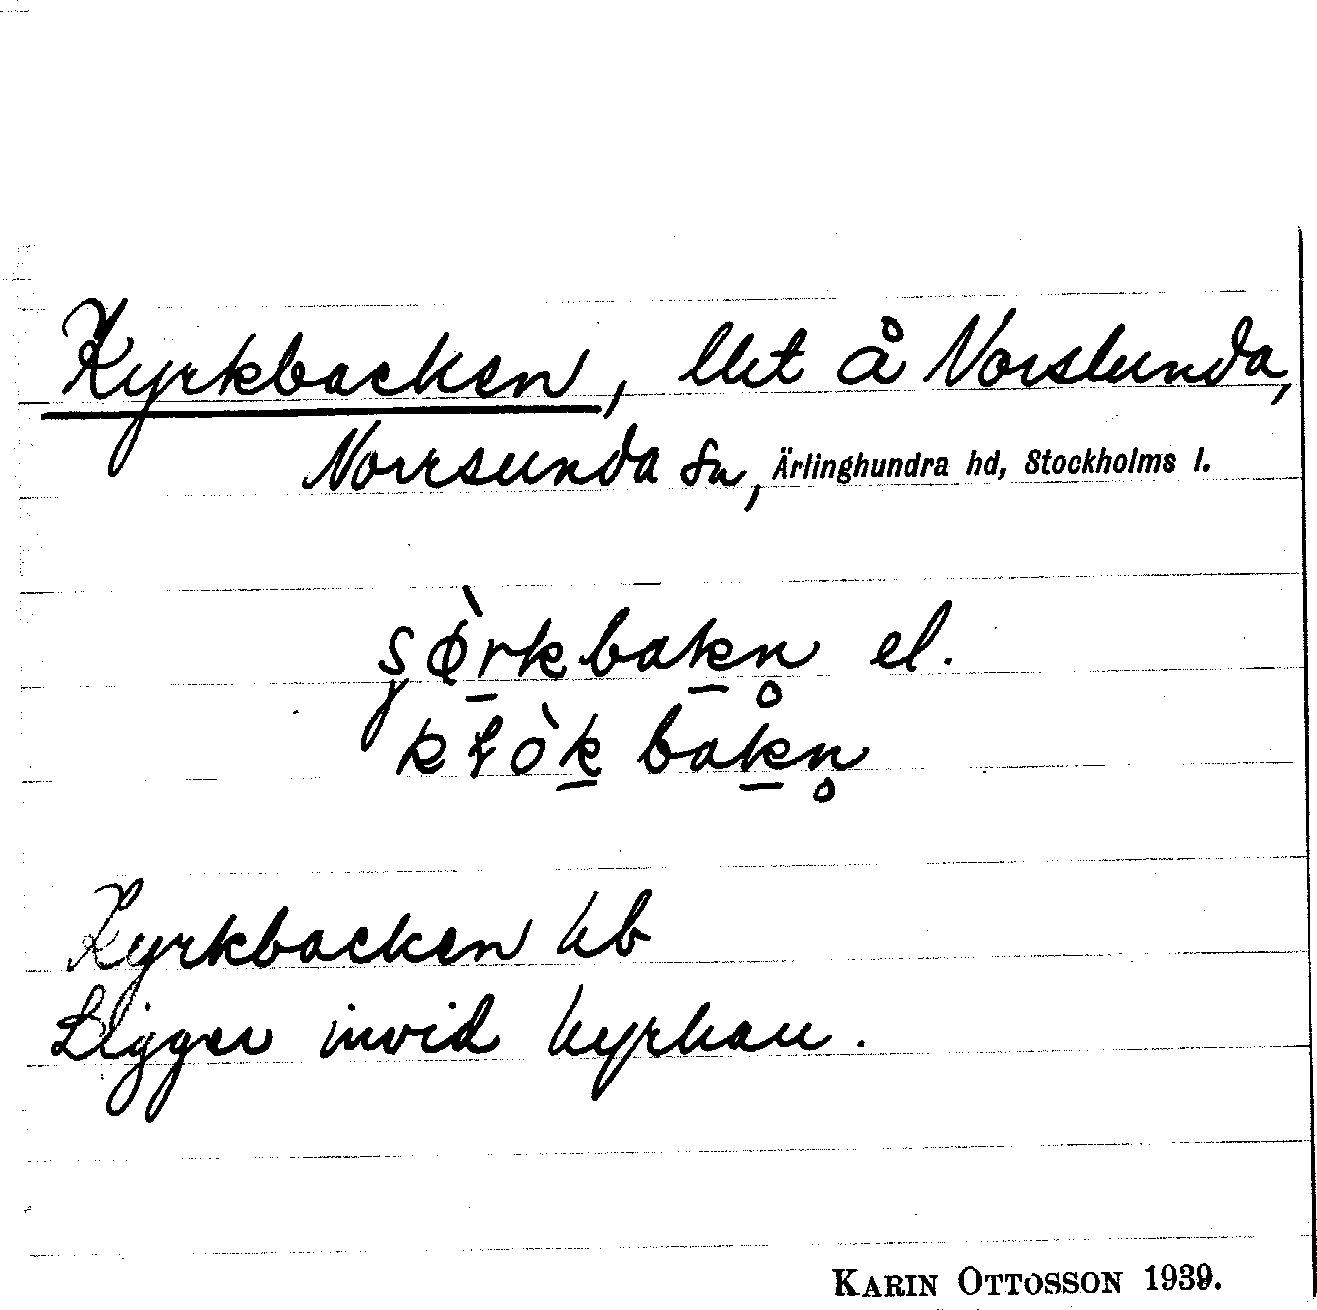 Kyrkbacken, llet å Norslunda,
Norrsunda sn, Ärlinghundra hd, Stockholms l.
bakn̥ el.
bakn̥
Kyrkbacken kb
Ligger invid kyrkan.
KARIN OTTOSSON 1939.